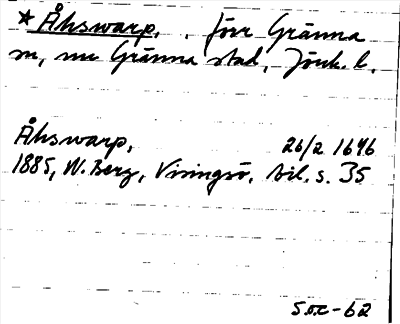 * Åhswarp, . förr Gränna
sn, nu Gränna stad, Jönk. l.
Åhswarp, 26/2 1646
1885, W. Berg, Visingsö, bil. s. 35
SOC-62